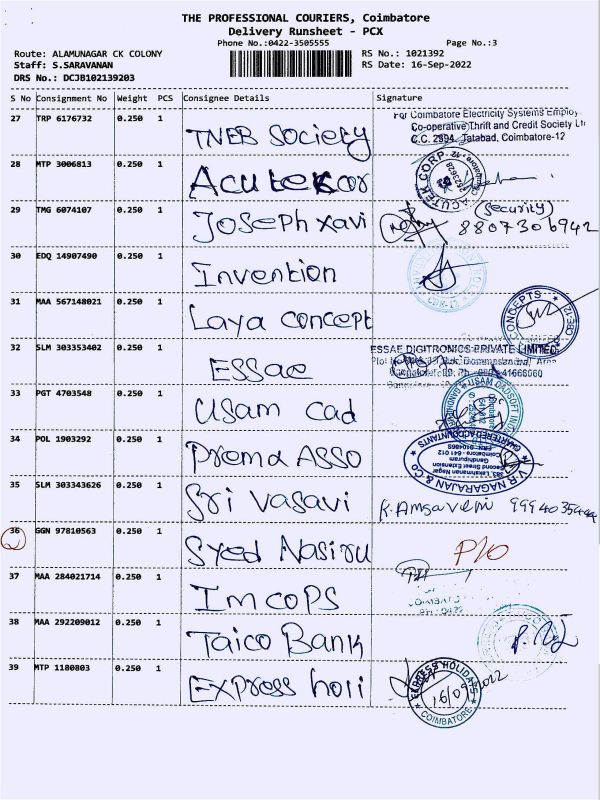 THE PROFESSIONAL COURIERS, Coimbatore
Delivery Runsheet - PCX
Phone No.:0422-3505555
Page No.:3
Route: ALAMUNAGAR CK COLONY
RS No.: 1021392
Staff: S.SARAVANAN
RS Date: 16-Sep-2022
DRS No.: DCJB102139203
S No Consignment No Weight PCS Consignee Details Signature
27 TRP 6176732 0.250 1
TNEB Society
For Coimbatore Electricity Systems Employ
Co-operative Thrift and Credit Society Lt
C.C. 2894, Tatabad, Coimbatore-12
28 MTP 3006813 0.250 1
Acutekcor
ACUTEK CORP
29 TMG 6074107 0.250 1
Joseph xavi
(Security)
8807306942
30 EDQ 14907490 0.250 1
Invention
CBE-12
31 MAA 567148021 0.250 1
Laya concept
CONCEPTS
CBE-12
32 SLM 303353402 0.250 1
ESSae
ESSAE DIGITRONICS PRIVATE LIMITED
33 PGT 4703548 0.250 1
Usam cad
34 POL 1903292 0.250 1
Prema ASSO
V.R. NAGARAJAN & CO
CHARTERED ACCOUNTANTS
383, Lakshmanan Nagar
Second Street Extension
Gandhipuram
Coimbatore - 641 012
35 SLM 303343626 0.250 1
Sri vasavi
36 GGN 97810563 0.250 1
Syed Nasiru
P/O
37 MAA 284021714 0.250 1
Imcops
38 MAA 292209012 0.250 1
Taico Bank
39 MTP 1180803 0.250 1
Express holi
EXPRESS HOLIDAYS
COIMBATORE
16/09/2022